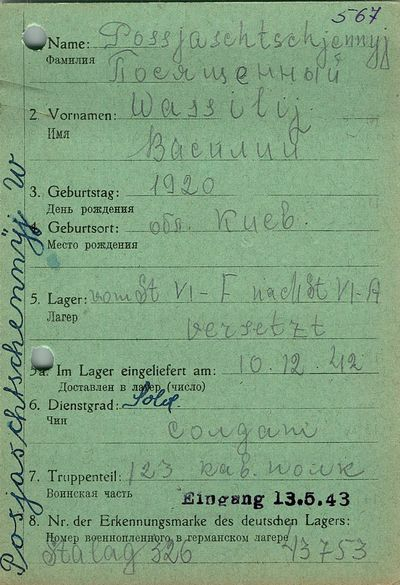 567
1. Name: Possjaschtschjennyj
Фамилия Посященный
2. Vornamen: Wassilij
Имя Василий
3. Geburtstag: 1920
День рождения
4. Geburtsort: обл. Киев.
Место рождения
5. Lager: vom St VI-F nach St VI-A
Лагер versetzt
5a. Im Lager eingeliefert am: 10.12.42
Доставлен в лагер (число)
6. Dienstgrad: Sold.
Чин солдат
7. Truppenteil: 123 кав. полк
Воинская часть Eingang 13.5.43
8. Nr. der Erkennungsmarke des deutschen Lagers:
Номер военнопленного в германском лагере
Stalag 326 43753
Posjaschtschennyj W